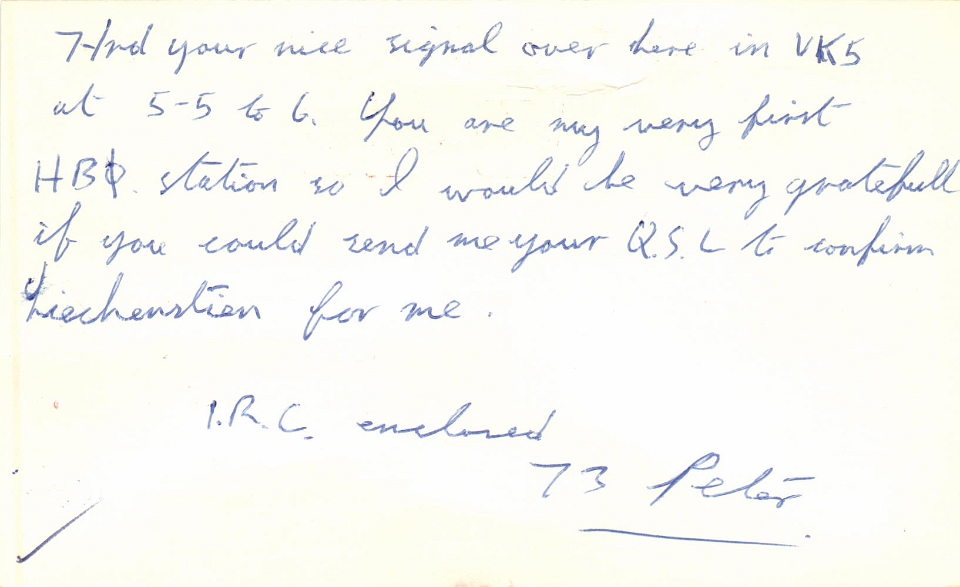 Hrd your nice signal over here in VK5
at 5-5 to 6. You are my very first
HBØ station so I would be very gratefull
if you could send me your Q.S.L to confirm
Liechenstien for me.
I.R.C. enclosed
73 Peter